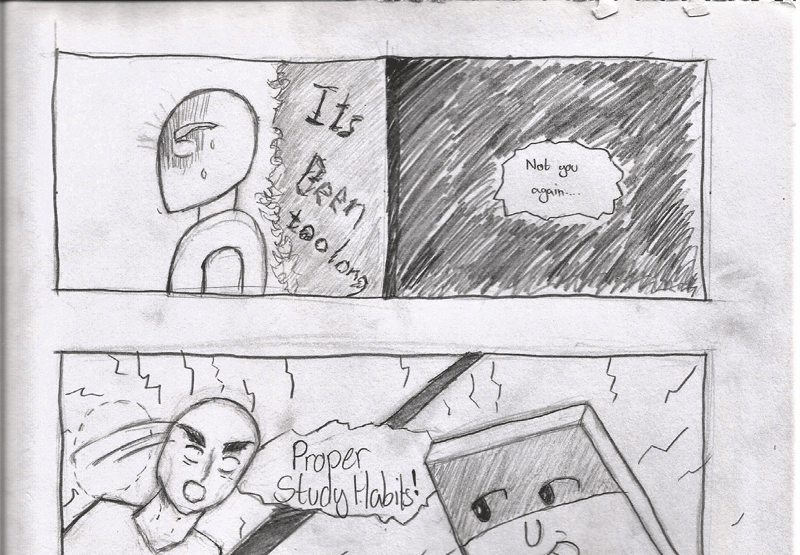 Its
Been
too long
Not you
again....
Proper
Study Habits!